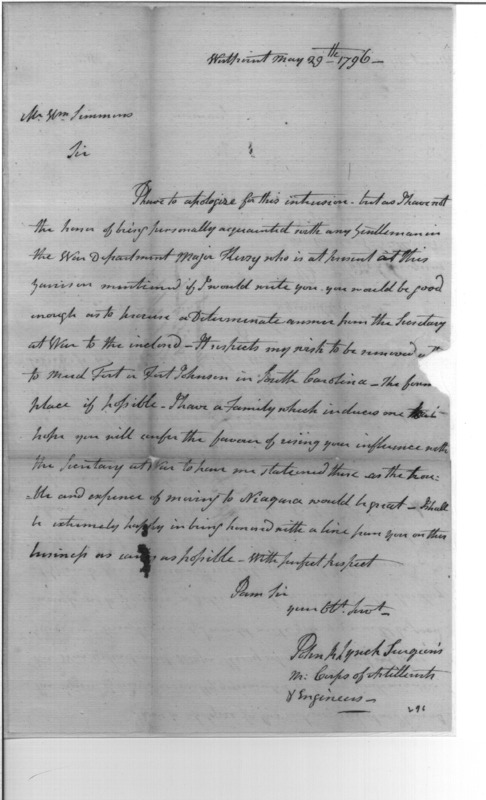 Westpoint May 29th 1796 -
Mr. Wm Simmons
Sir
I have to apologize for this intrusion - but as I have not
the honor of being personally acquainted with any Gentleman in
the War Department Major Flurry who is at present at this
Garrison mentioned if I would write you you would be good
enough as to procure a Determinate answer from the Secretary
at War to the inclosed - It respects my wish to be removed
to Meed Fort or Fort Johnson in South Carolina - the form
place if possible - I have a family which induces me
hope you will confer the favour of using your influence with
the Secretary at War to have me stationed there as the trou:
ble and expence of moving to Niagara would be great - I shall
be extremely happy in being honored with a line from you on this
business as early as possible - With perfect respect
I am Sir
your Obt. Servt -
John R Lynch Surgeon's
M: Corps of Artillerists
& Engineers -
291